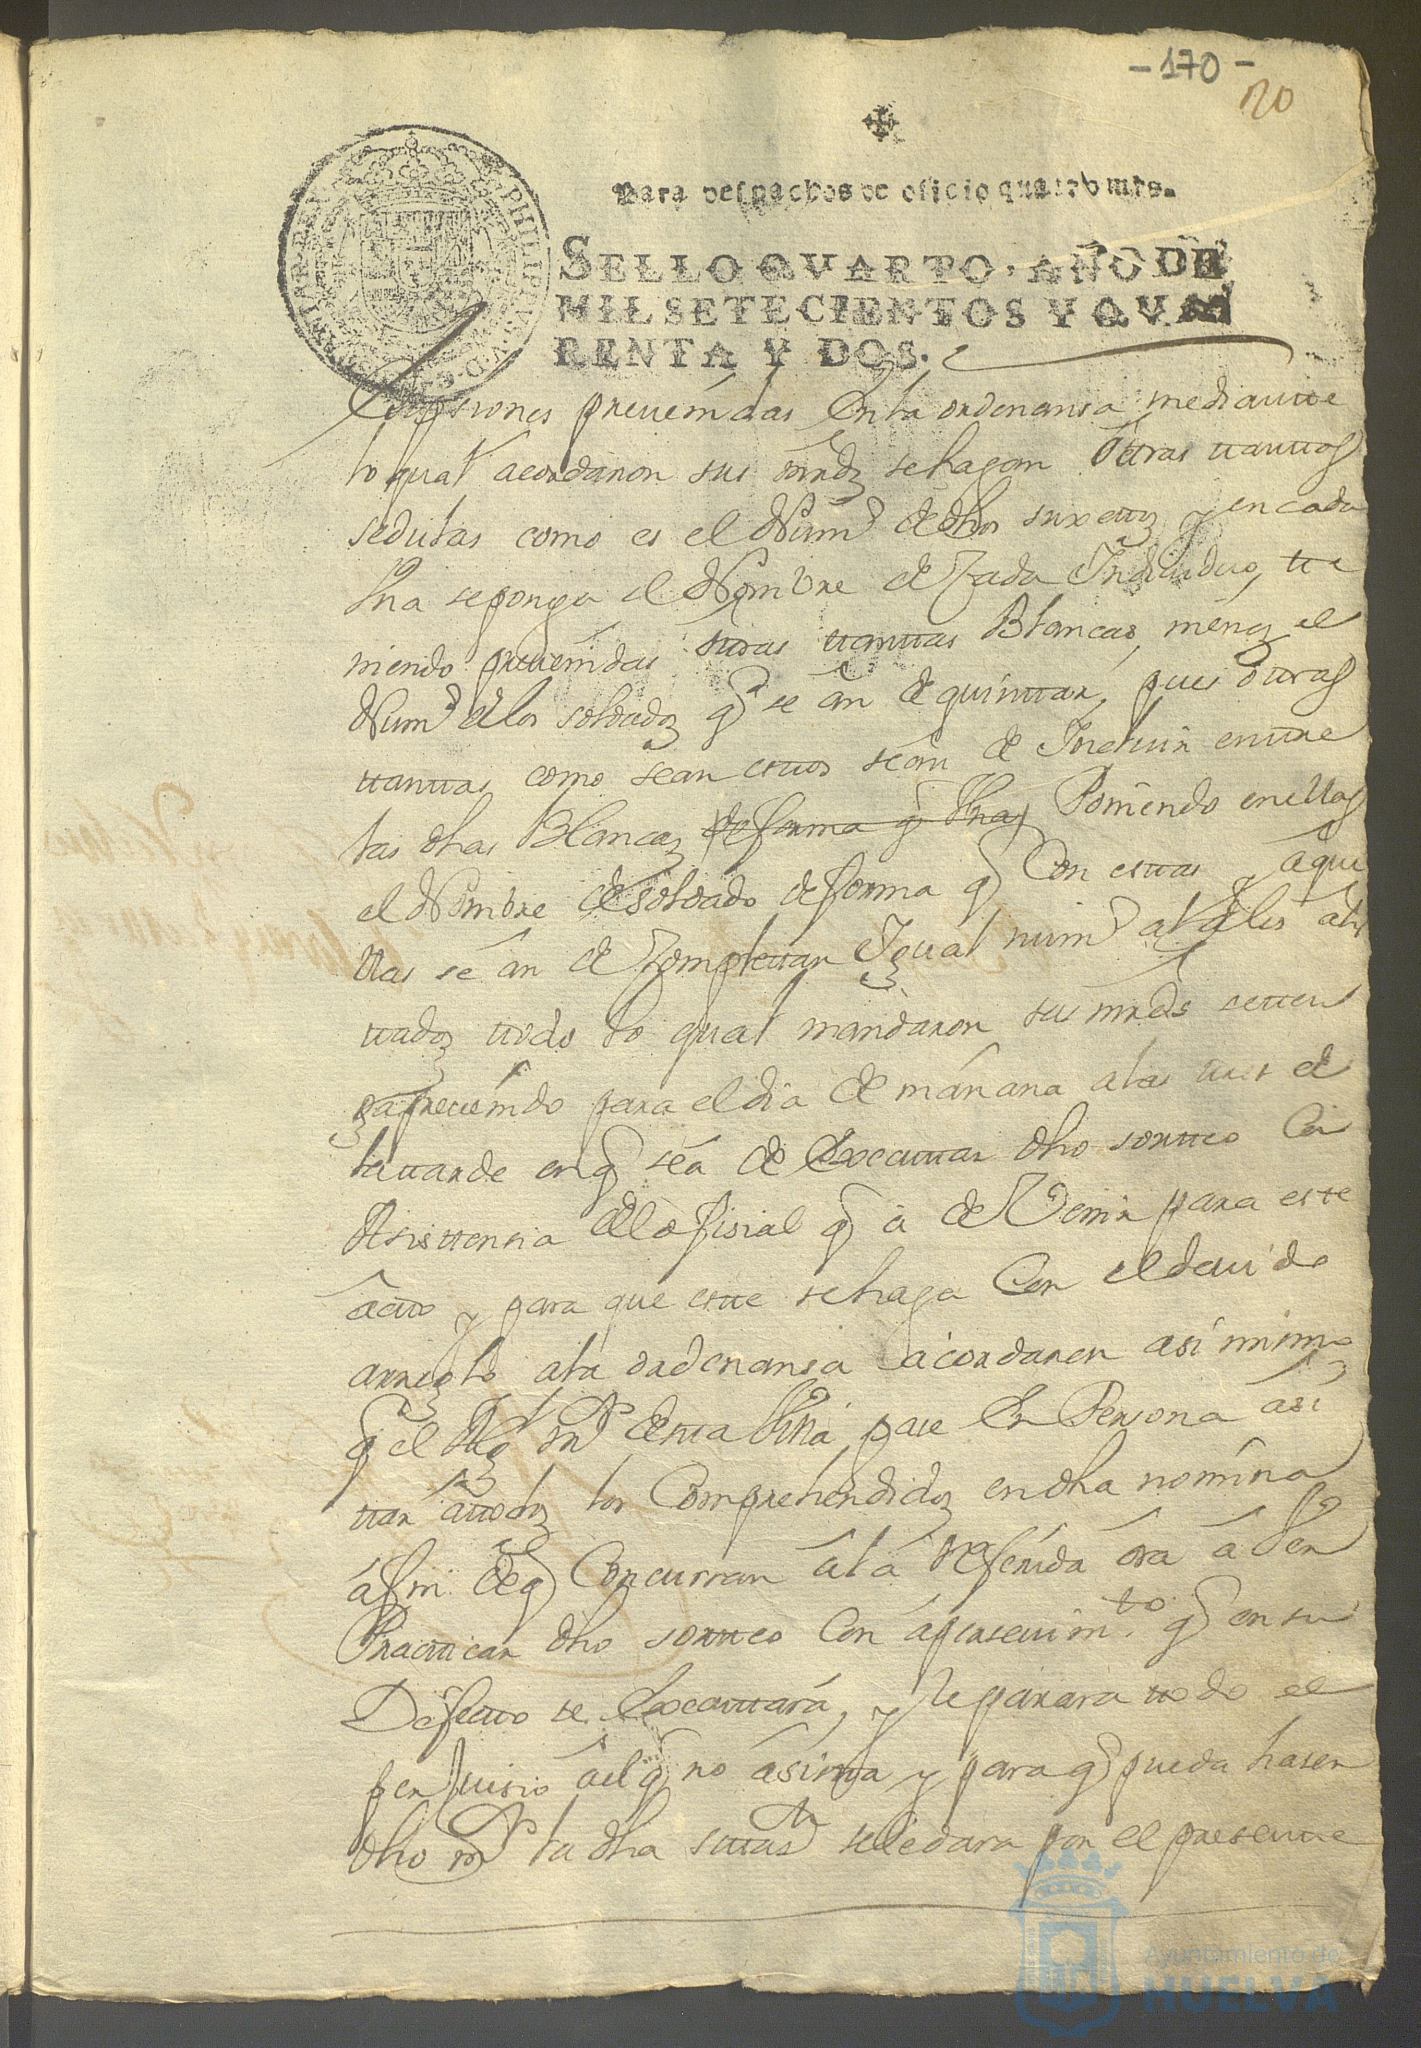 - 170 -
120
Para despachos de oficio quatro mrs.
SELLO QVARTO, AÑO DE
MIL SETECIENTOS Y QVA
RENTA Y DOS.
PHILIPPUS V D G
preuenidas En la ordenansa mediantte
lo qual acordaron sus mrds se hagan ottras tanttas
sedulas como es el Num.º de dhos suxettos y en cada
Vna se ponga el Nombre de Cada Indiuiduo, tte
niendo preuenidas ottras tanttas Blancas, menos el
Num.º de los soldados q se an de quinttar, pues ottras
tanttas como sean esttos sean de Incluir enttre
las dhas Blancas de forma q Vnas Poniendo en ellas
el Nombre de soldado de forma q Con esttas y aque
llas se an de Complettar Igual num.º al de los alis
ttados ttodo lo qual mandaron sus mrds se tten
ga preuenido para el dia de mañana a las tres de
la tarde en q sea de Executtar dho sortteo Con
Asisttensia del ofisial q a de Venir para este
actto y para que estte se haga Con el deuido
arreglo a la ordenansa acordaron asi mismo
q el Alg.l m.r de esta Villa pase En Persona a si
ttar a ttodos los Comprehendidos en dha nomina
a fin de q Concurran a la referida ora a Ver
Practticar dho sortteo Con apersevim.to q en su
Defectto se Executtará, y le parara ttodo el
perjuisio al q no asistta y para q pueda haser
dho m.r la dha sittas.n se le dara por el presentte
Ayuntamiento de
HUELVA